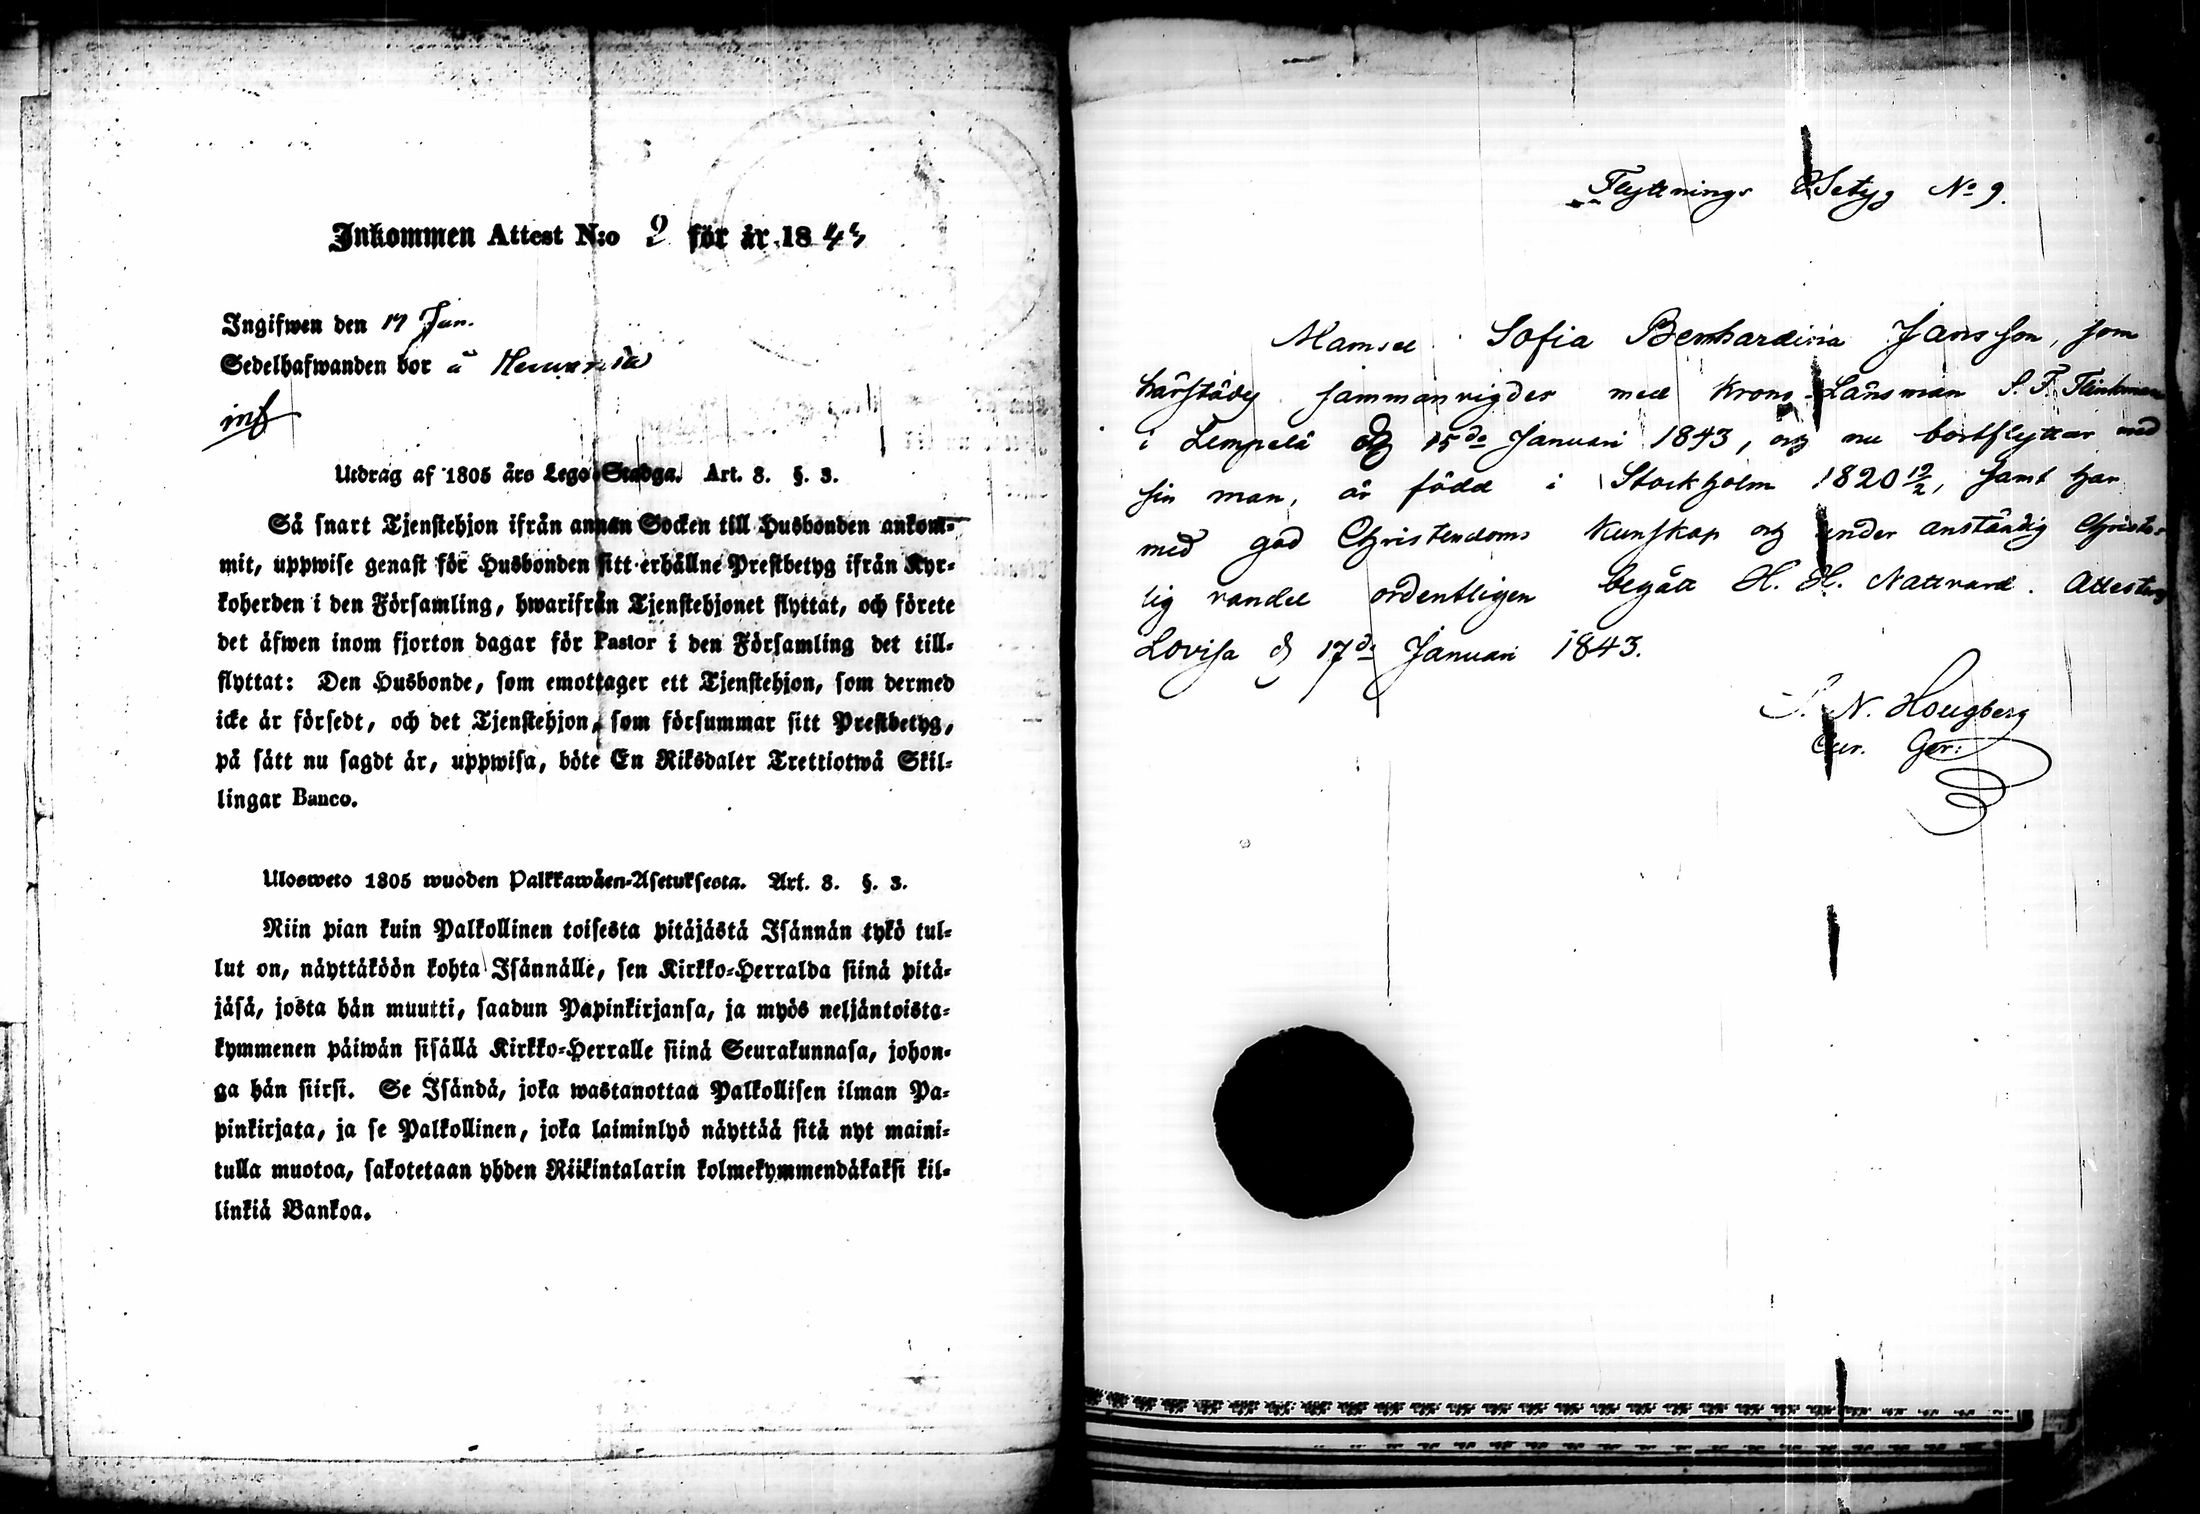 Inkommen Attest N:o 9 för år 1843
Ingifwen den 17 Jan.
Sedelhafwanden bor å
inf
Utdrag af 1805 års Lego-Stadga. Art. 8. §. 3.
Så snart Tjenstehjon ifrån annan Socken till Husbonden ankom-
mit, uppwise genast för Husbonden sitt erhållne Prestbetyg ifrån Kyr-
koherden i den Församling, hwarifrån Tjenstehjonet flyttat, och förete
det äfwen inom fjorton dagar för Pastor i den Församling det till-
flyttat: Den Husbonde, som emottager ett Tjenstehjon, som dermed
icke är försedt, och det Tjenstehjon, som försummar sitt Prestbetyg,
på sätt nu sagdt är, uppwisa, böte En Riksdaler Trettiotwå Skil-
lingar Banco.
Uloswето 1805 wuoden Palkkawäen-Asetuksesta. Art. 8. §. 3.
Niin pian kuin Palkollinen toisesta pitäjästä Isännän tykö tul-
lut on, näyttäköön kohta Isännälle, sen Kirkko-Herralda siinä pitä-
jäsä, josta hän muutti, saadun Papinkirjansa, ja myös neljäntoista-
kymmenen päiwän sisällä Kirkko-Herralle siinä Seurakunnasa, johon-
ga hän siirsi. Se Isändä, joka wastanottaa Palkollisen ilman Pa-
pinkirjata, ja se Palkollinen, joka laiminlyö näyttää sitä nyt maini-
tulla muotoa, sakotetaan yhden Riikintalarin kolmekymmendäkaksi kil-
linkiä Bankoa.
Flyttnings Betyg No 9.
Mamsell Sofia Bernhardina Jansson, som
härstädes sammanvigdes med Krono Länsman S. F. Flinkman
i Lempelä d 15de Januari 1843, och nu bortflyttar med
sin man, är född i Stockholm 1820 12/2, samt har
med god Christendoms Kunskap och under anständig Christe-
lig vandel ordentligen begått H. H. Nattvard. Attesterar
Lovisa d 17de Januari 1843.
N. Hougberg
Cur. Ger: